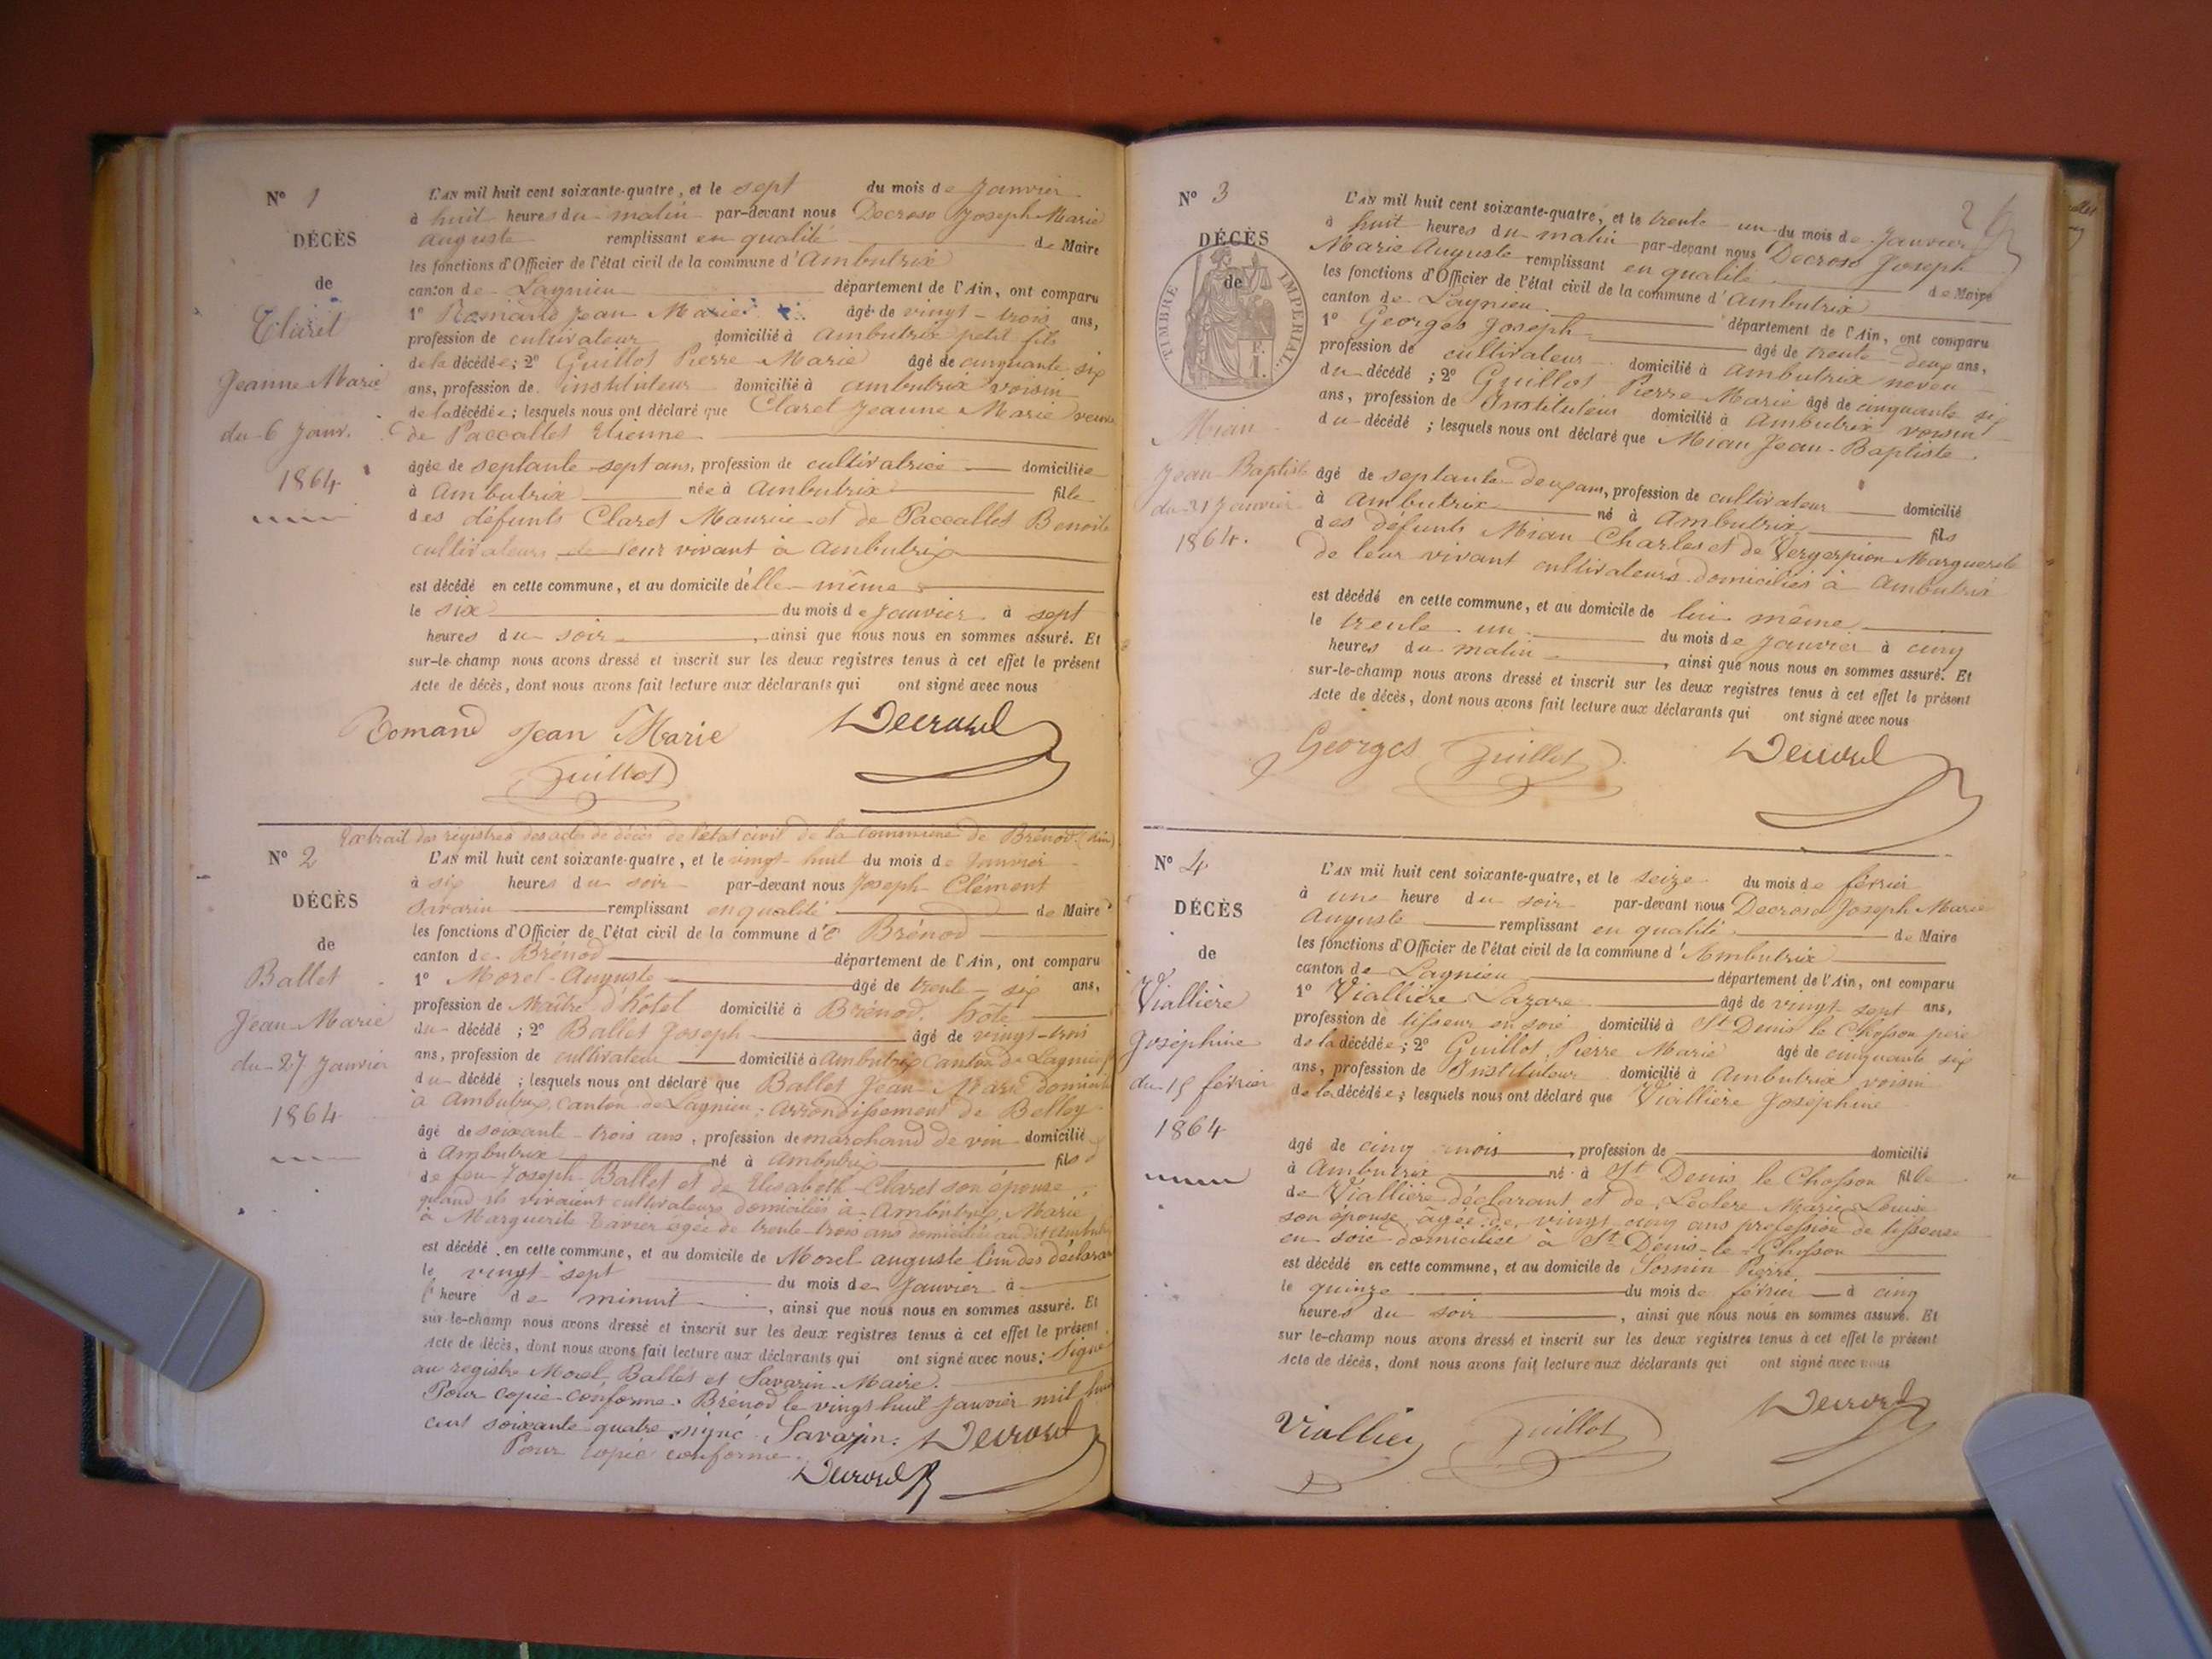 N° 1
DÉCÈS
de
Claret
Jeanne Marie
du 6 Janv.
1864
L'AN mil huit cent soixante-quatre, et le sept du mois de Janvier
à huit heures du matin par-devant nous Decroso Joseph Marie
Auguste remplissant en qualité de Maire
les fonctions d'Officier de l'état civil de la commune d'Ambutrix
canton de Lagnieu département de l'Ain, ont comparu
1° Romand Jean Marie âgé de vingt-trois ans,
profession de cultivateur domicilié à Ambutrix petit fils
de la décédée; 2° Guillot Pierre Marie âgé de cinquante six
ans, profession de instituteur domicilié à ambutrix voisin
de la décédée; lesquels nous ont déclaré que Claret Jeanne Marie veuve
de Paccallet Etienne
âgée de septante-sept ans, profession de cultivatrice domiciliée
à Ambutrix née à Ambutrix fille
des défunts Claret Maurice et de Paccallet Benoite
cultivateurs de leur vivant à Ambutrix
est décédé en cette commune, et au domicile d'elle-même
le six du mois de Janvier à sept
heures du soir, ainsi que nous nous en sommes assuré. Et
sur-le-champ nous avons dressé et inscrit sur les deux registres tenus à cet effet le présent
Acte de décès, dont nous avons fait lecture aux déclarants qui ont signé avec nous
Romand Jean Marie
Guillot
Extrait des registres des actes de décès de l'état civil de la commune de Brénod (Ain)
N° 2
DÉCÈS
de
Ballet
Jean-Marie
du 27 Janvier
1864
L'AN mil huit cent soixante-quatre, et le vingt-huit du mois de Janvier
à six heures du soir par-devant nous Joseph Clément
Savarin remplissant en qualité de Maire
les fonctions d'Officier de l'état civil de la commune d'e Brénod
canton de Brénod département de l'Ain, ont comparu
1° Morel Auguste âgé de trente-six ans,
profession de Maître d'hôtel domicilié à Brénod, hôte
du décédé; 2° Ballet Joseph âgé de vingt-trois
ans, profession de cultivateur domicilié à Ambutrix Canton de Lagnieu
du décédé; lesquels nous ont déclaré que Ballet Jean-Marie domicilié
à Ambutrix, Canton de Lagnieu, arrondissement de Belley
âgé de soixante-trois ans, profession de marchand de vin domicilié
à Ambutrix né à Ambutrix fils
de feu Joseph Ballet et de Elisabeth Claret son épouse,
quand ils vivaient cultivateurs domiciliés à Ambutrix, Marié
à Marguerite Tavier agée de trente-trois ans domiciliée au dit Ambutrix
est décédé en cette commune, et au domicile de Morel auguste l'un des déclarants
le vingt-sept du mois de Janvier à
l'heure de minuit, ainsi que nous nous en sommes assuré. Et
sur-le-champ nous avons dressé et inscrit sur les deux registres tenus à cet effet le présent
Acte de décès, dont nous avons fait lecture aux déclarants qui ont signé avec nous: Signé
au registre Morel, Ballet et Savarin Maire.
Pour copie conforme. Brénod le vingt huit Janvier mil huit
cent soixante quatre signé Savarin:
Pour copie conforme.
N° 3
DÉCÈS
de
TIMBRE IMPÉRIAL
1 F.
Mian
Jean Baptiste
du 31 Janvier
1864.
L'AN mil huit cent soixante-quatre, et le trente un du mois de Janvier
à huit heures du matin par-devant nous Decroso Joseph
Marie Auguste remplissant en qualité de Maire
les fonctions d'Officier de l'état civil de la commune d'Ambutrix
canton de Lagnieu département de l'Ain, ont comparu
1° Georges Joseph âgé de trente deux ans,
profession de cultivateur domicilié à Ambutrix neveu
du décédé; 2° Guillot Pierre Marie âgé de cinquante six
ans, profession de Instituteur domicilié à Ambutrix voisin
du décédé; lesquels nous ont déclaré que Mian Jean-Baptiste
âgé de septante deux ans, profession de cultivateur domicilié
à Ambutrix né à Ambutrix fils
des défunts Mian Charles et de Vergerpion Marguerite
de leur vivant cultivateurs domiciliés à Ambutrix
est décédé en cette commune, et au domicile de lui même
le trente un du mois de Janvier à cinq
heures du matin, ainsi que nous nous en sommes assuré. Et
sur-le-champ nous avons dressé et inscrit sur les deux registres tenus à cet effet le présent
Acte de décès, dont nous avons fait lecture aux déclarants qui ont signé avec nous
Georges Guillot
N° 4
DÉCÈS
de
Viallière
Joséphine
du 15 février
1864
L'AN mil huit cent soixante-quatre, et le seize du mois de février
à une heure du soir par-devant nous Decroso Joseph Marie
Auguste remplissant en qualité de Maire
les fonctions d'Officier de l'état civil de la commune d'Ambutrix
canton de Lagnieu département de l'Ain, ont comparu
1° Viallière Lazare âgé de vingt-sept ans,
profession de tisseur en soie domicilié à St Denis le Chosson père
de la décédée; 2° Guillot Pierre Marie âgé de cinquante six
ans, profession de Instituteur domicilié à Ambutrix voisin
de la décédée; lesquels nous ont déclaré que Viallière Joséphine
âgé de cinq mois, profession de domicilié
à Ambutrix né à St Denis le Chosson fille
de Viallière déclarant et de Leclere Marie Louise
son épouse, âgée de vingt cinq ans profession de tisseuse
en soie domiciliée à St Denis-le-Chosson
est décédé en cette commune, et au domicile de Sornin Pierre
le quinze du mois de février à cinq
heures du soir, ainsi que nous nous en sommes assuré. Et
sur le-champ nous avons dressé et inscrit sur les deux registres tenus à cet effet le présent
Acte de décès, dont nous avons fait lecture aux déclarants qui ont signé avec nous
Guillot